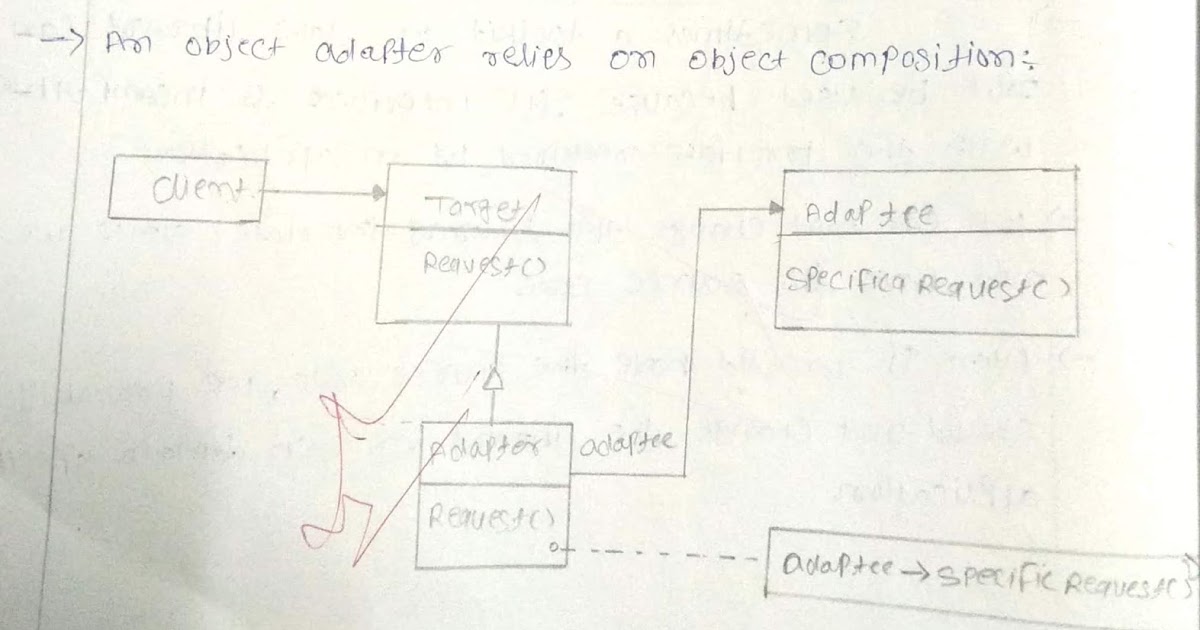 → An object adapter relies on object composition:
Client
Target
Request()
Adaptee
Specifica Request()
Adapter
adaptee
Request()
adaptee → Specific Request()